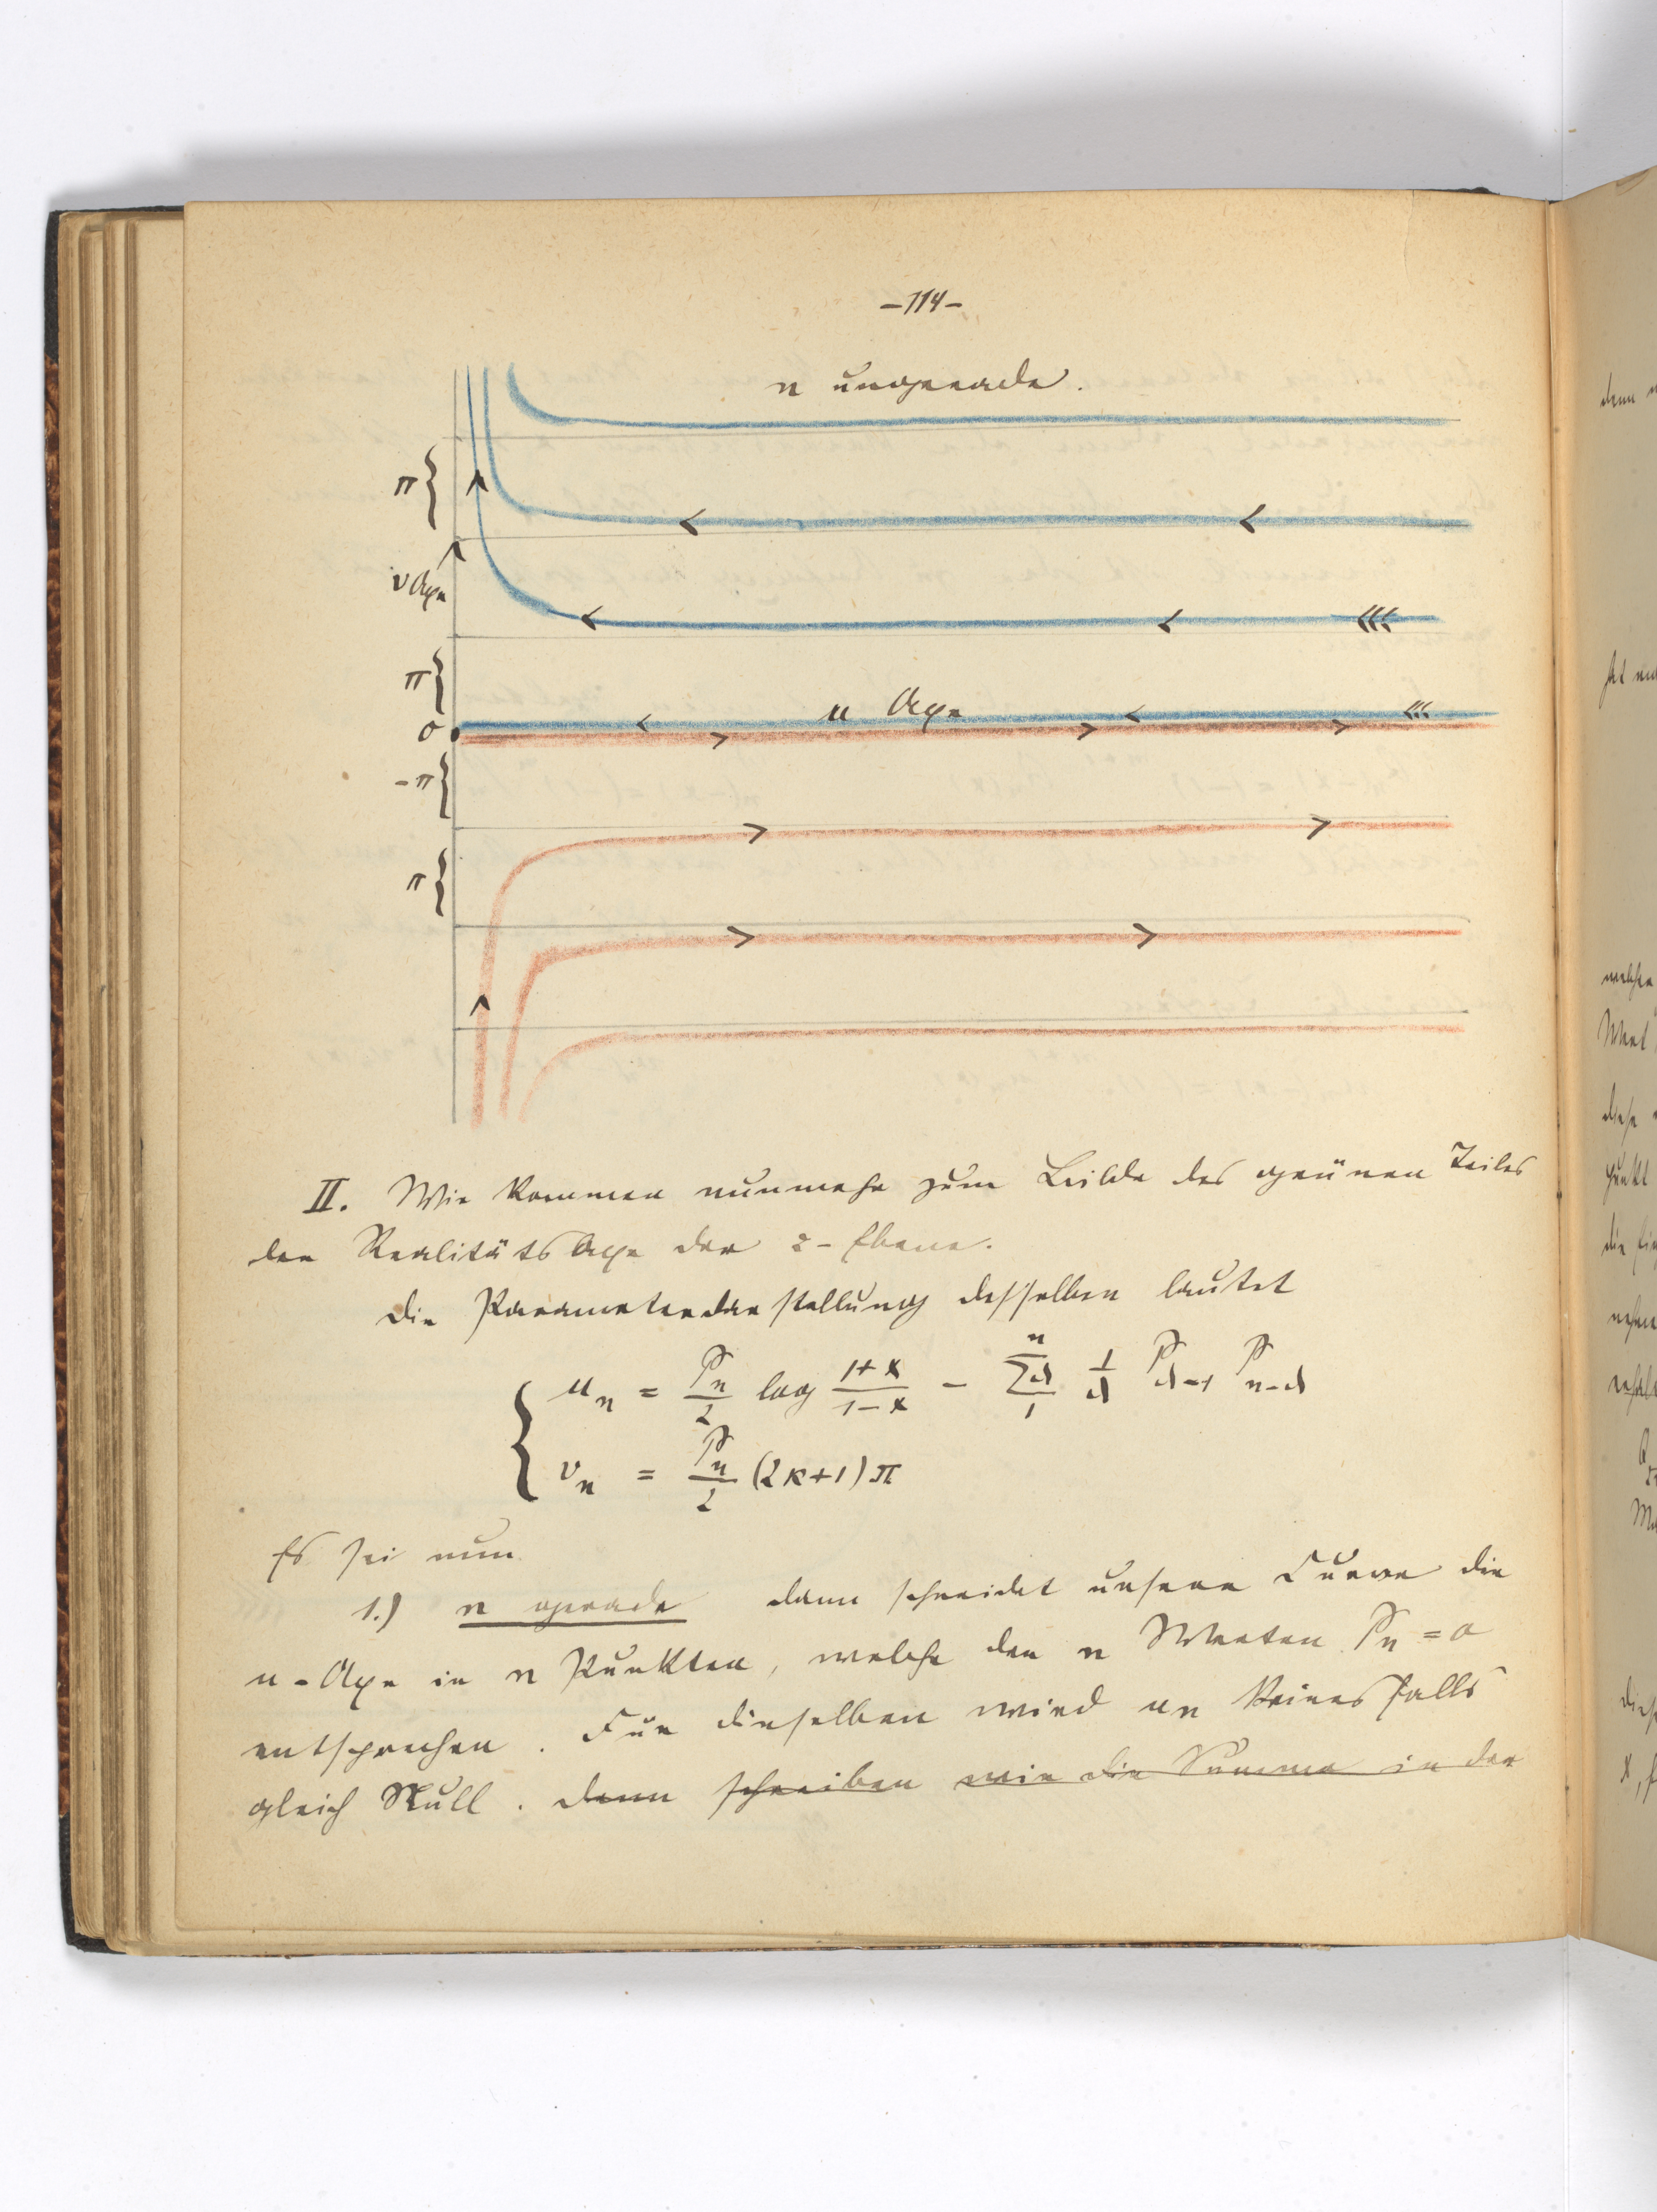 -114-
n ungerade.
π
v Axe
π
0
u Axe
-π
π
II. Wir kommen nunmehr zum Bilde des grünen Teiles
der Realitäts Axe der z-Ebene.
Die Parameterdarstellung desselben lautet
u_n = P_n/2 log (1+x)/(1-x) - Σ_1^n 1/λ P_{λ-1} P_{n-λ}
v_n = P_n/2 (2κ+1)π
Es sei nun
1.) n gerade dann schneidet unsere Curve die
u-Axe in n Punkten, welche den n Werten P_n = 0
entsprechen. Für dieselben wird u_n keines falls
gleich Null. denn schreiben wir die Summe in der